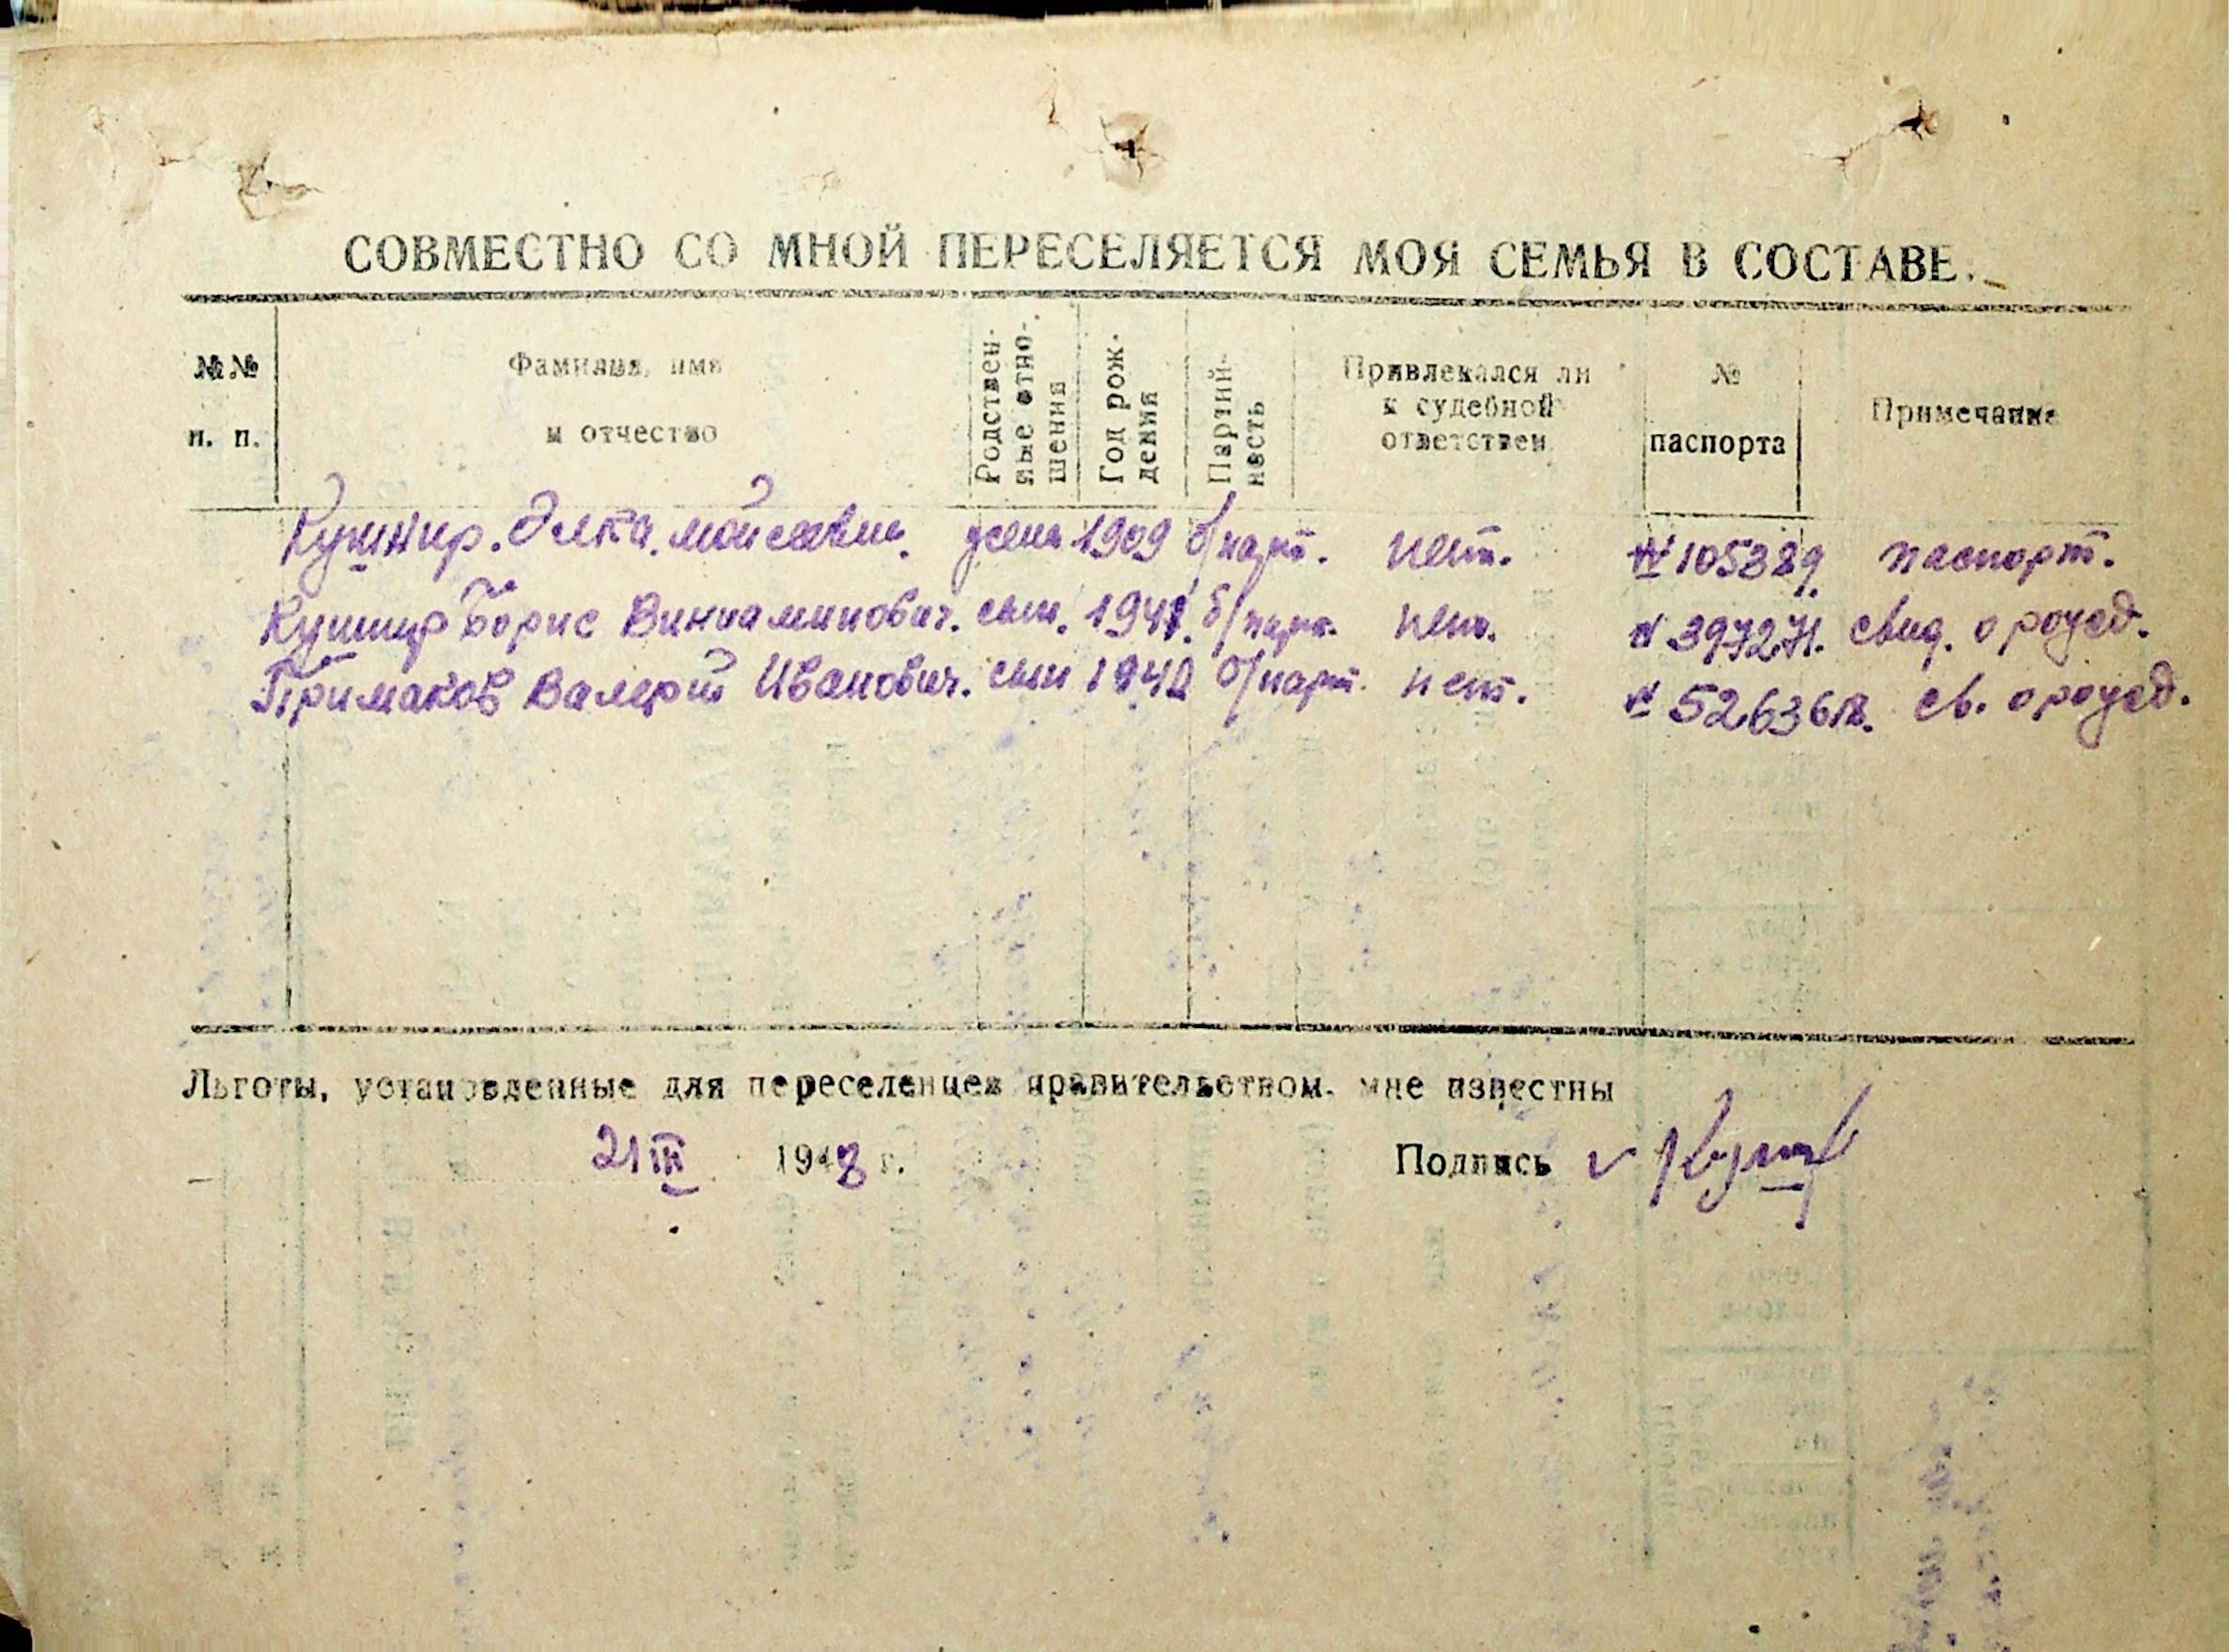 СОВМЕСТНО СО МНОЙ ПЕРЕСЕЛЯЕТСЯ МОЯ СЕМЬЯ В СОСТАВЕ:
№№ п. п.
Фамилия, имя и отчество
Родственные отношения
Год рождения
Партийность
Привлекался ли к судебной ответствен.
№ паспорта
Примечание
Кушнир. Элка. мойсеевна. жена 1909 б/парт. нет. № 105389 паспорт.
Кушнир Борис Виниаминович. сын. 1941. б/парт. нет. № 397271. свид. о рожд.
Примаков Валерий Иванович. сын 1940 б/парт. нет. № 526361. св. о рожд.
Льготы, установленные для переселенцев правительством. мне известны
21 III 1948 г. Подпись